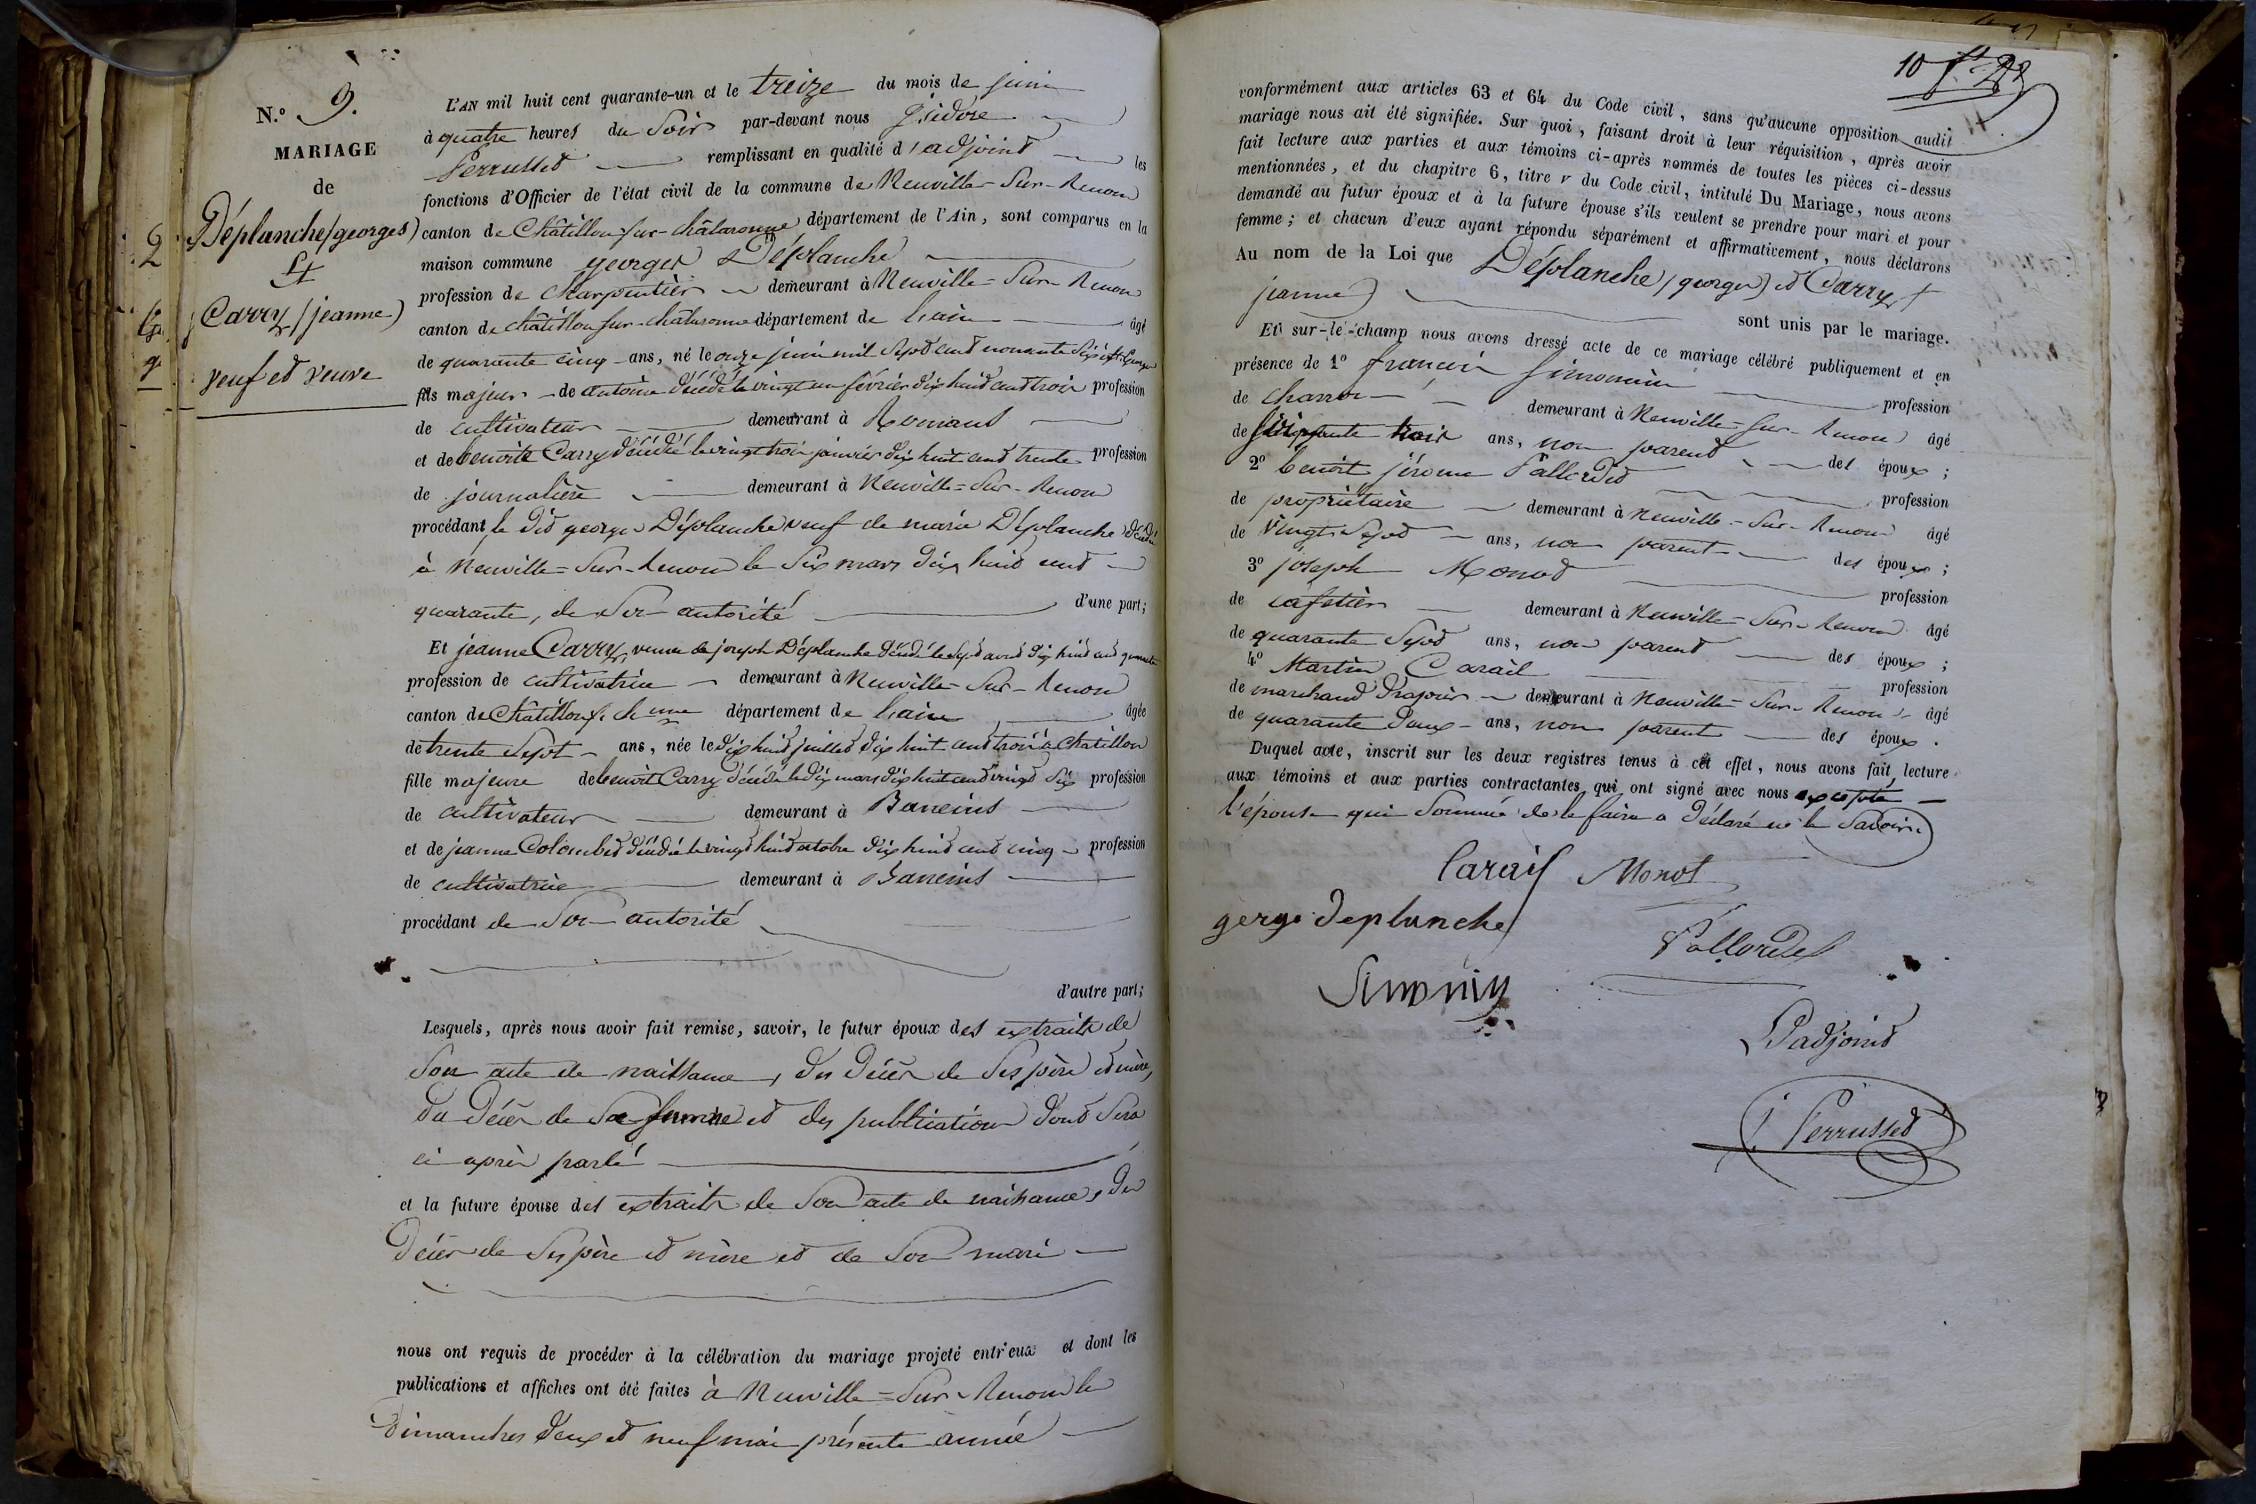 N.° 9.
MARIAGE
de
Déplanche (georges)
Et
Carry (jeanne)
veuf et veuve
L'AN mil huit cent quarante-un et le treize du mois de juin
à quatre heures du Soir par-devant nous Isidore
Perrusset remplissant en qualité d'adjoint les
fonctions d'Officier de l'état civil de la commune de Neuville-Sur-Renom
canton de Châtillon sur-châlaronne département de l'Ain, sont comparus en la
maison commune georges Déplanche
profession de Charpentier demeurant à Neuville=Sur-Renom
canton de châtillon sur-châlaronne département de l'ain âgé
de quarante cinq ans, né le onze juin mil Sept cent nonante Six à
fils majeur de antoine décédé le vingt un février dix huit cent trois profession
de cultivateur demeurant à Romans
et de benoite Carry décédée le vingt trois janvier dix huit cent trente profession
de journalière demeurant à Neuville=Sur-Renom
procédant le dit george Déplanche veuf de marie Déplanche décédée
à Neuville=Sur-Renom le Six mars dix huit cent
quarante, de Son autorité d'une part;
Et jeanne Carry, veuve de joseph Déplanche décédé le Sept avril dix huit cent quarante
profession de cultivatrice demeurant à Neuville-Sur-Renom
canton de Châtillon s. ch.nne département de l'ain âgée
de trente Sept ans, née le dix huit juillet dix huit cent trois à Chatillon
fille majeure de benoit Carry décédé le dix mars dix huit cent vingt Six profession
de cultivateur demeurant à Baneins
et de jeanne Colombet décédée le vingt huit octobre dix huit cent cinq profession
de cultivatrice demeurant à Baneins
procédant de Son autorité
d'autre part;
Lesquels, après nous avoir fait remise, savoir, le futur époux des extraits de
Son acte de naissance, du décès de Ses père et mère,
du décès de Sa femme et des publications dont Sera
ci après parlé
et la future épouse des extraits de Son acte de naissance, du
décès de Ses père et mère et de Son mari
nous ont requis de procéder à la célébration du mariage projeté entr'eux et dont les
publications et affiches ont été faites à Neuville=Sur-Renom les
dimanches deux et neuf mai présente année
10
conformément aux articles 63 et 64 du Code civil, sans qu'aucune opposition audit
mariage nous ait été signifiée. Sur quoi, faisant droit à leur réquisition, après avoir
fait lecture aux parties et aux témoins ci-après nommés de toutes les pièces ci-dessus
mentionnées, et du chapitre 6, titre v du Code civil, intitulé Du Mariage, nous avons
demandé au futur époux et à la future épouse s'ils veulent se prendre pour mari et pour
femme; et chacun d'eux ayant répondu séparément et affirmativement, nous déclarons
Au nom de la Loi que Déplanche (georges) et Carry
jeanne) sont unis par le mariage.
Et sur-le-champ nous avons dressé acte de ce mariage célébré publiquement et en
présence de 1° françois Simonin profession
de charron demeurant à Neuville=Sur-Renom âgé
de trois ans, non parent des époux;
2° benoit jérome Pallordet profession
de propriétaire demeurant à Neuville-Sur-Renom âgé
de vingt Sept ans, non parent des époux;
3° joseph Monod profession
de cafetier demeurant à Neuville-Sur-Renom âgé
de quarante Sept ans, non parent des époux;
4° Martin Carail profession
de marchand drapier demeurant à Neuville-Sur-Renom âgé
de quarante deux ans, non parent des époux.
Duquel acte, inscrit sur les deux registres tenus à cet effet, nous avons fait lecture
aux témoins et aux parties contractantes qui ont signé avec nous excepté
l'épouse qui Sommée de le faire a déclaré ne le Savoir.
Carail Monot
gerge deplanche
Pallordet
Simonin
L'adjoint
i Perrusset